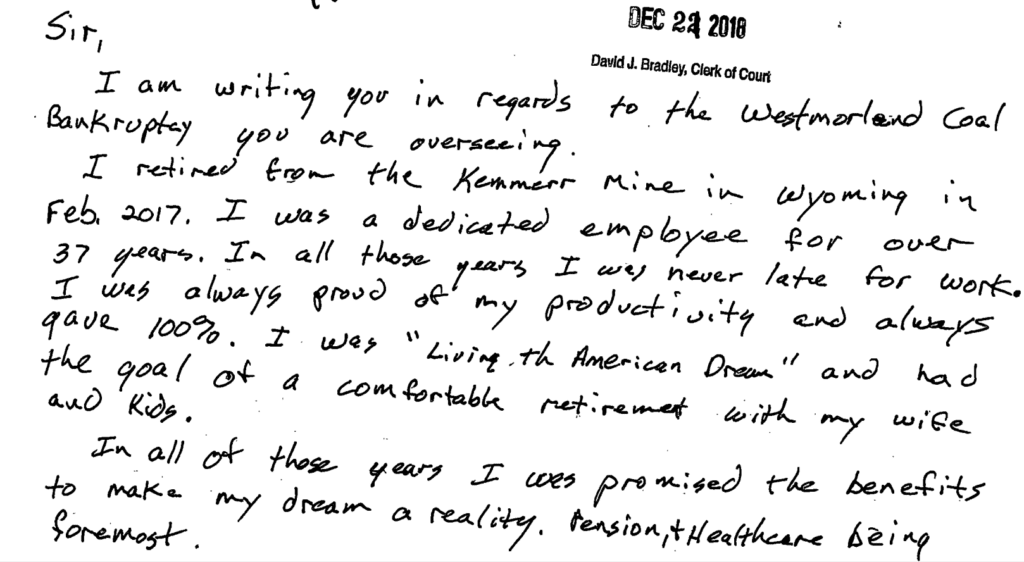 DEC 21 2018
David J. Bradley, Clerk of Court
Sir,
I am writing you in regards to the Westmorlend Coal
Bankruptay you are overseeing.
I retired from the Kemmerr Mine in Wyoming in
Feb. 2017. I was a dedicated employee for over
37 years. In all those years I was never late for work.
I was always proud of my productivity and always
gave 100%. I was "Living th American Dream" and had
the goal of a comfortable retiremet with my wife
and Kids.
In all of those years I was promised the benefits
to make my dream a reality. Pension, + Healthcare being
foremost.